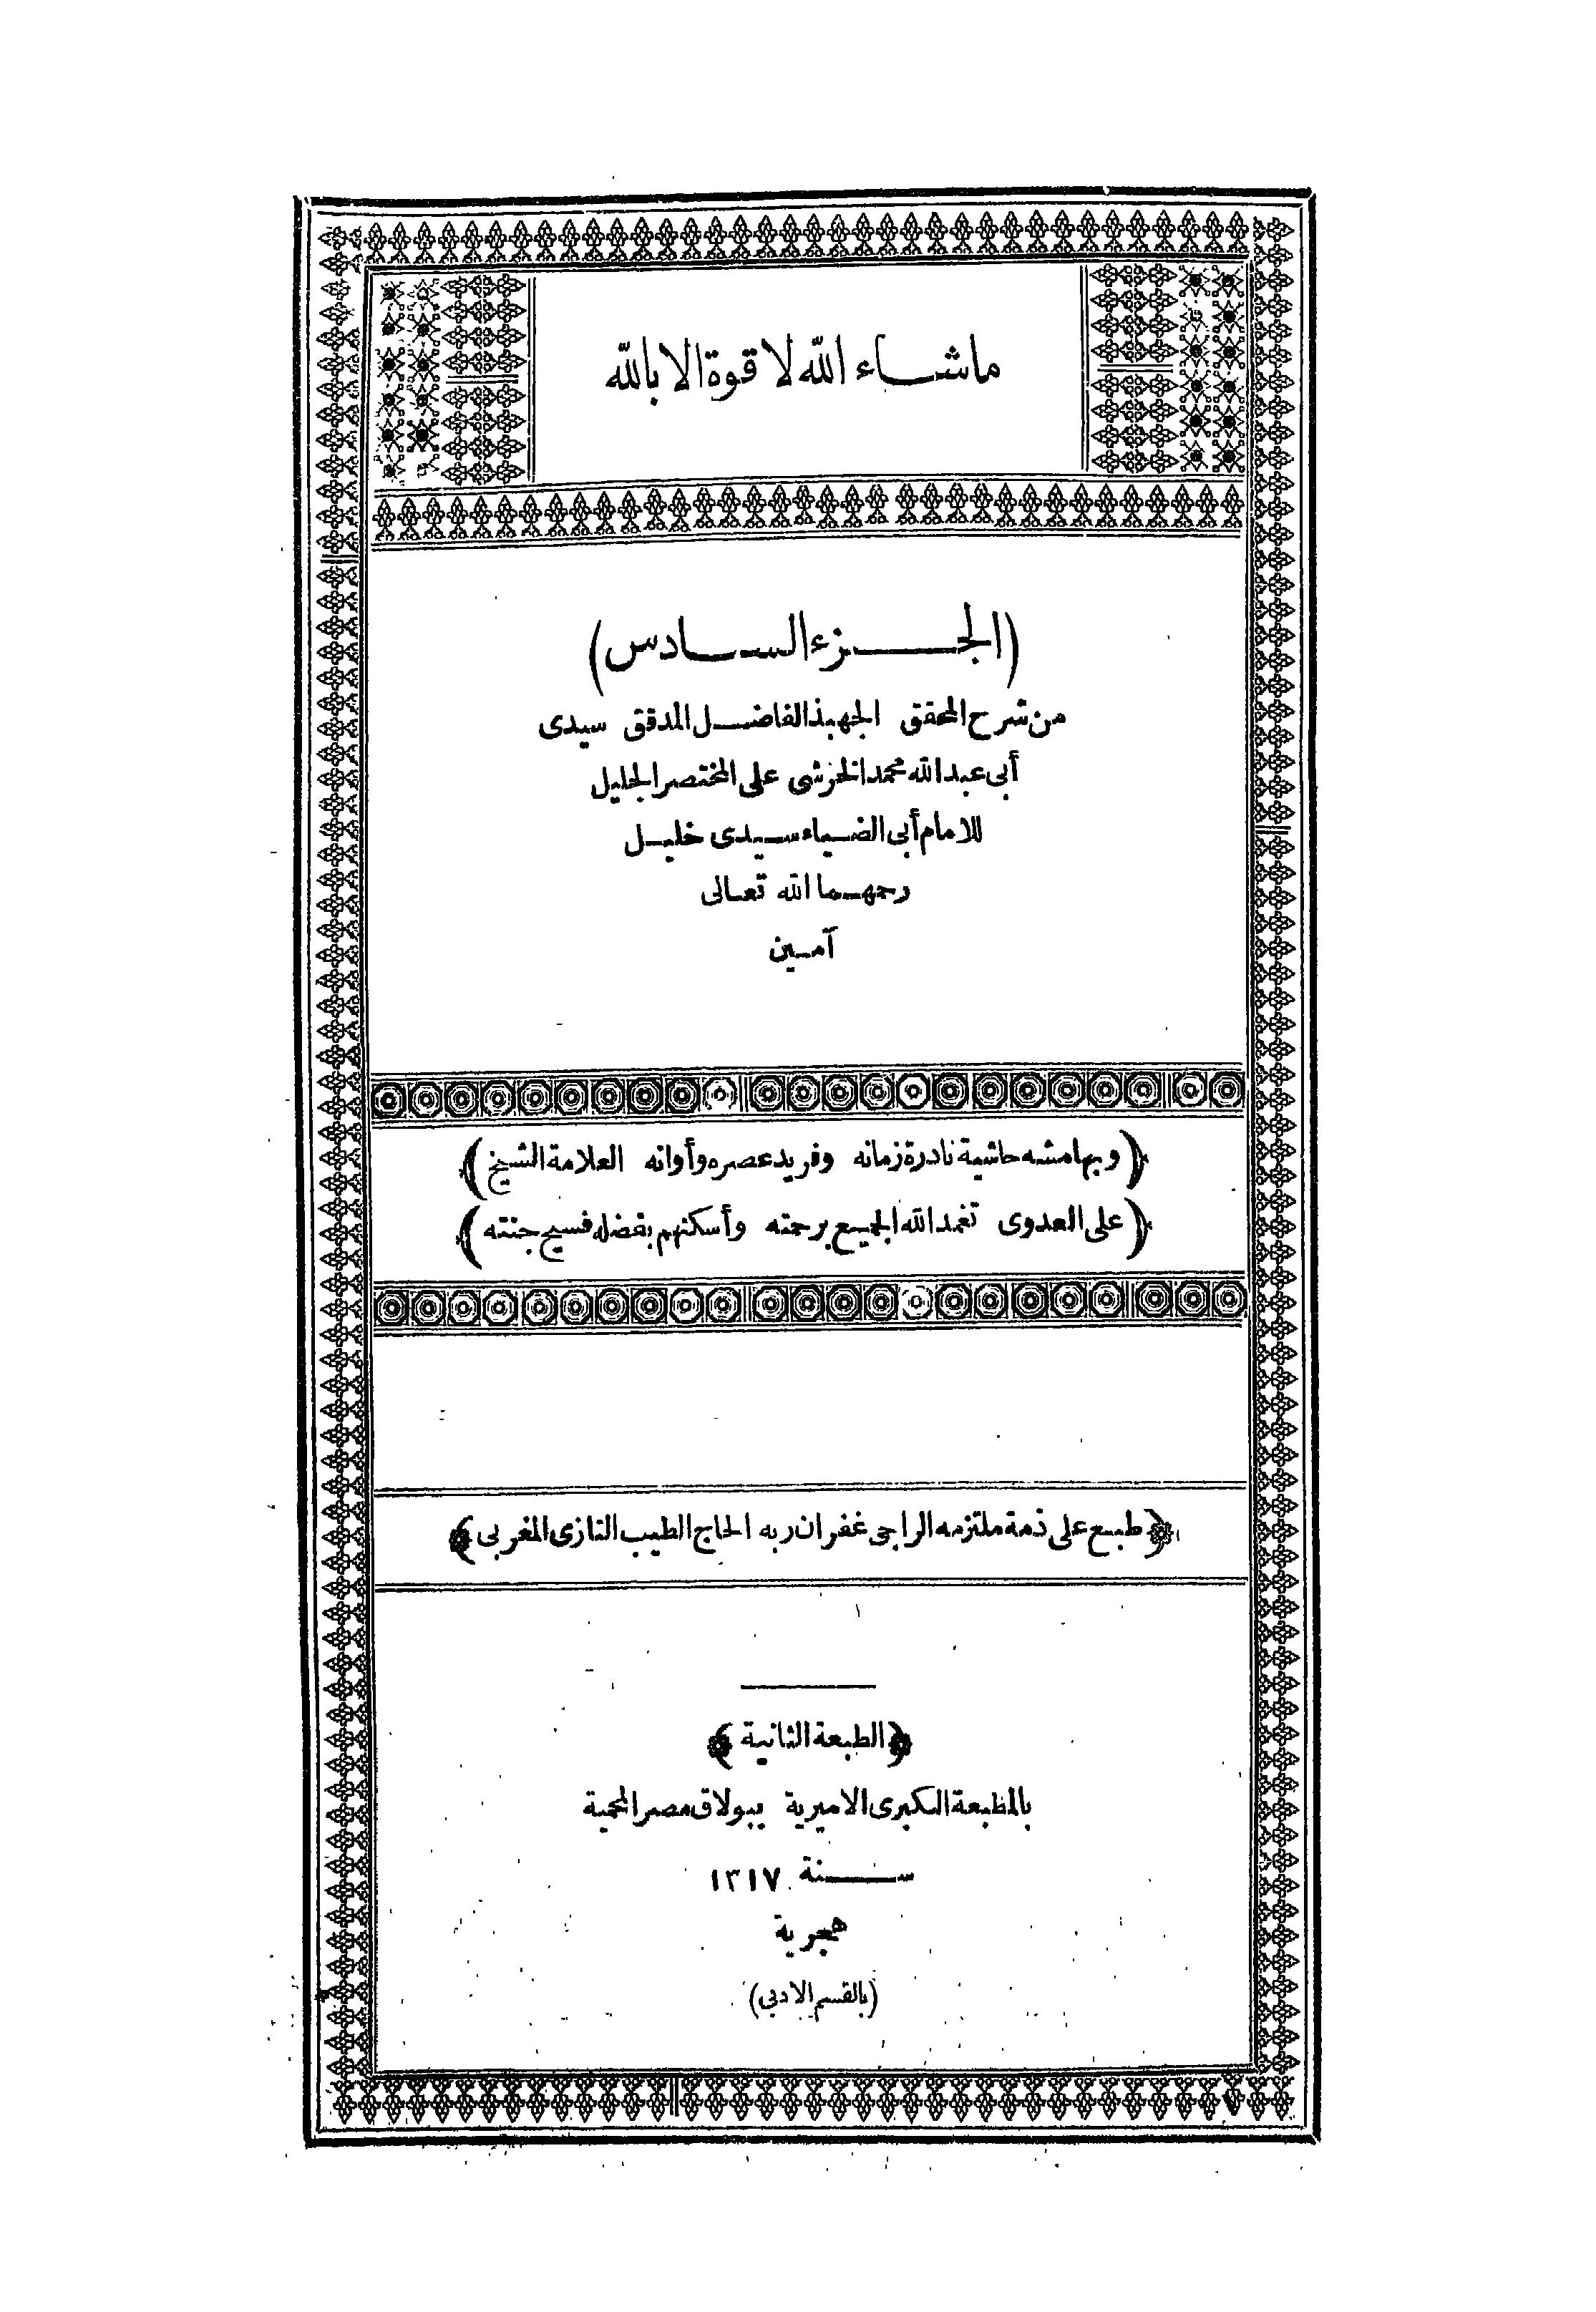 ماشاء الله لا قوة الا بالله
(الجزء السادس)
من شرح المحقق الجهبذ الفاضل المدقق سيدى
أبى عبد الله محمد الخرشى على المختصر الجليل
للامام أبى الضياء سيدى خليل
رحمهما الله تعالى
آمين
(وبهامشه حاشية نادرة زمانه وفريد عصره وأوانه العلامة الشيخ)
(على العدوى تغمد الله الجميع برحمته وأسكنهم بفضله فسيح جنته)
(طبع على ذمة ملتزمه الراجى غفران ربه الحاج الطيب التازى المغربى)
(الطبعة الثانية)
بالمطبعة الكبرى الاميرية ببولاق مصر المحمية
سنة ١٣١٧
هجرية
(بالقسم الادبى)